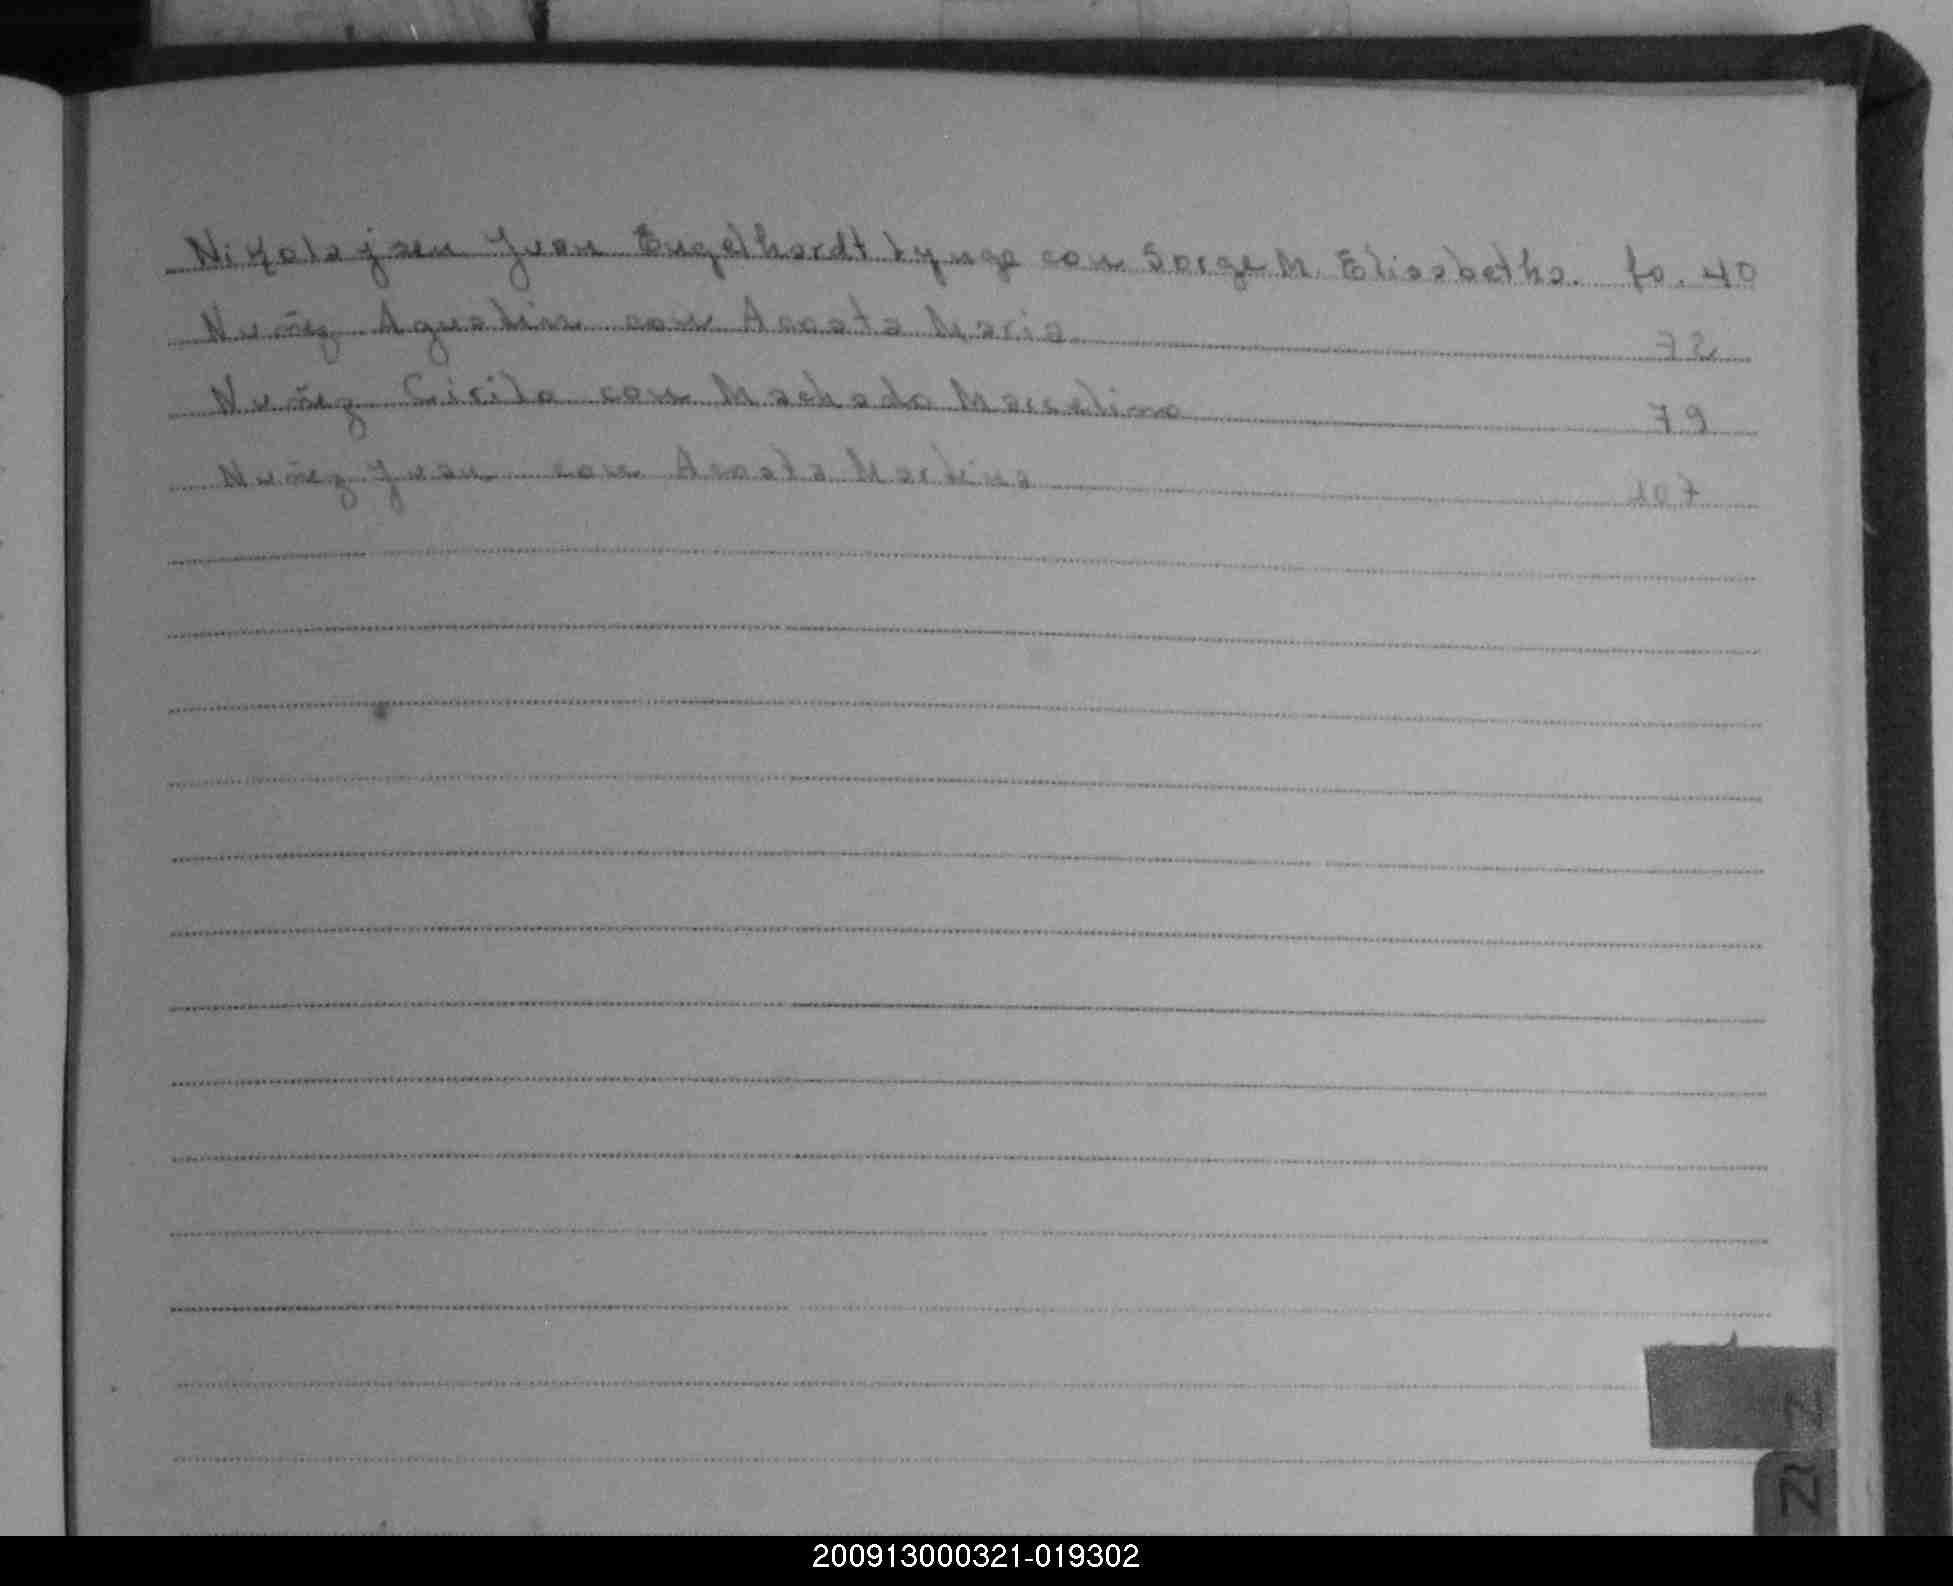 Nikolajsen Juan Engelhardt Lynge con Sorge M. Elisabetha. fo. 40
Nuñez Agustin con Acosta Maria 72
Nuñez Cirilo con Machado Marcelina 79
Nuñez Juan con Acosta Martina 107
N
Ñ
200913000321-019302